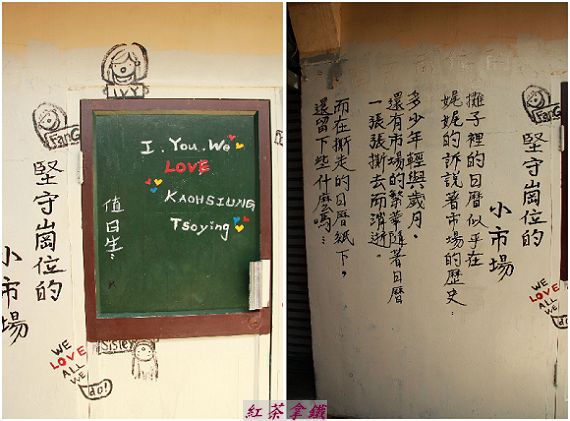 IVY
FanG
堅守崗位的
小市場
I. You. We
LOVE
KAOHSIUNG
Tsoying
值日生：
Sisley
WE
LOVE
ALL
WE
do!
堅守崗位的
小市場
攤子裡的日曆似乎在
娓娓的訴說著市場的歷史…
多少年輕與歲月，
還有市場的繁華隨著日曆
一張張撕去而消逝。
而在撕走的日曆紙下，
還留下些什麼嗎…
WE
LOVE
ALL
WE
do!
紅茶拿鐵